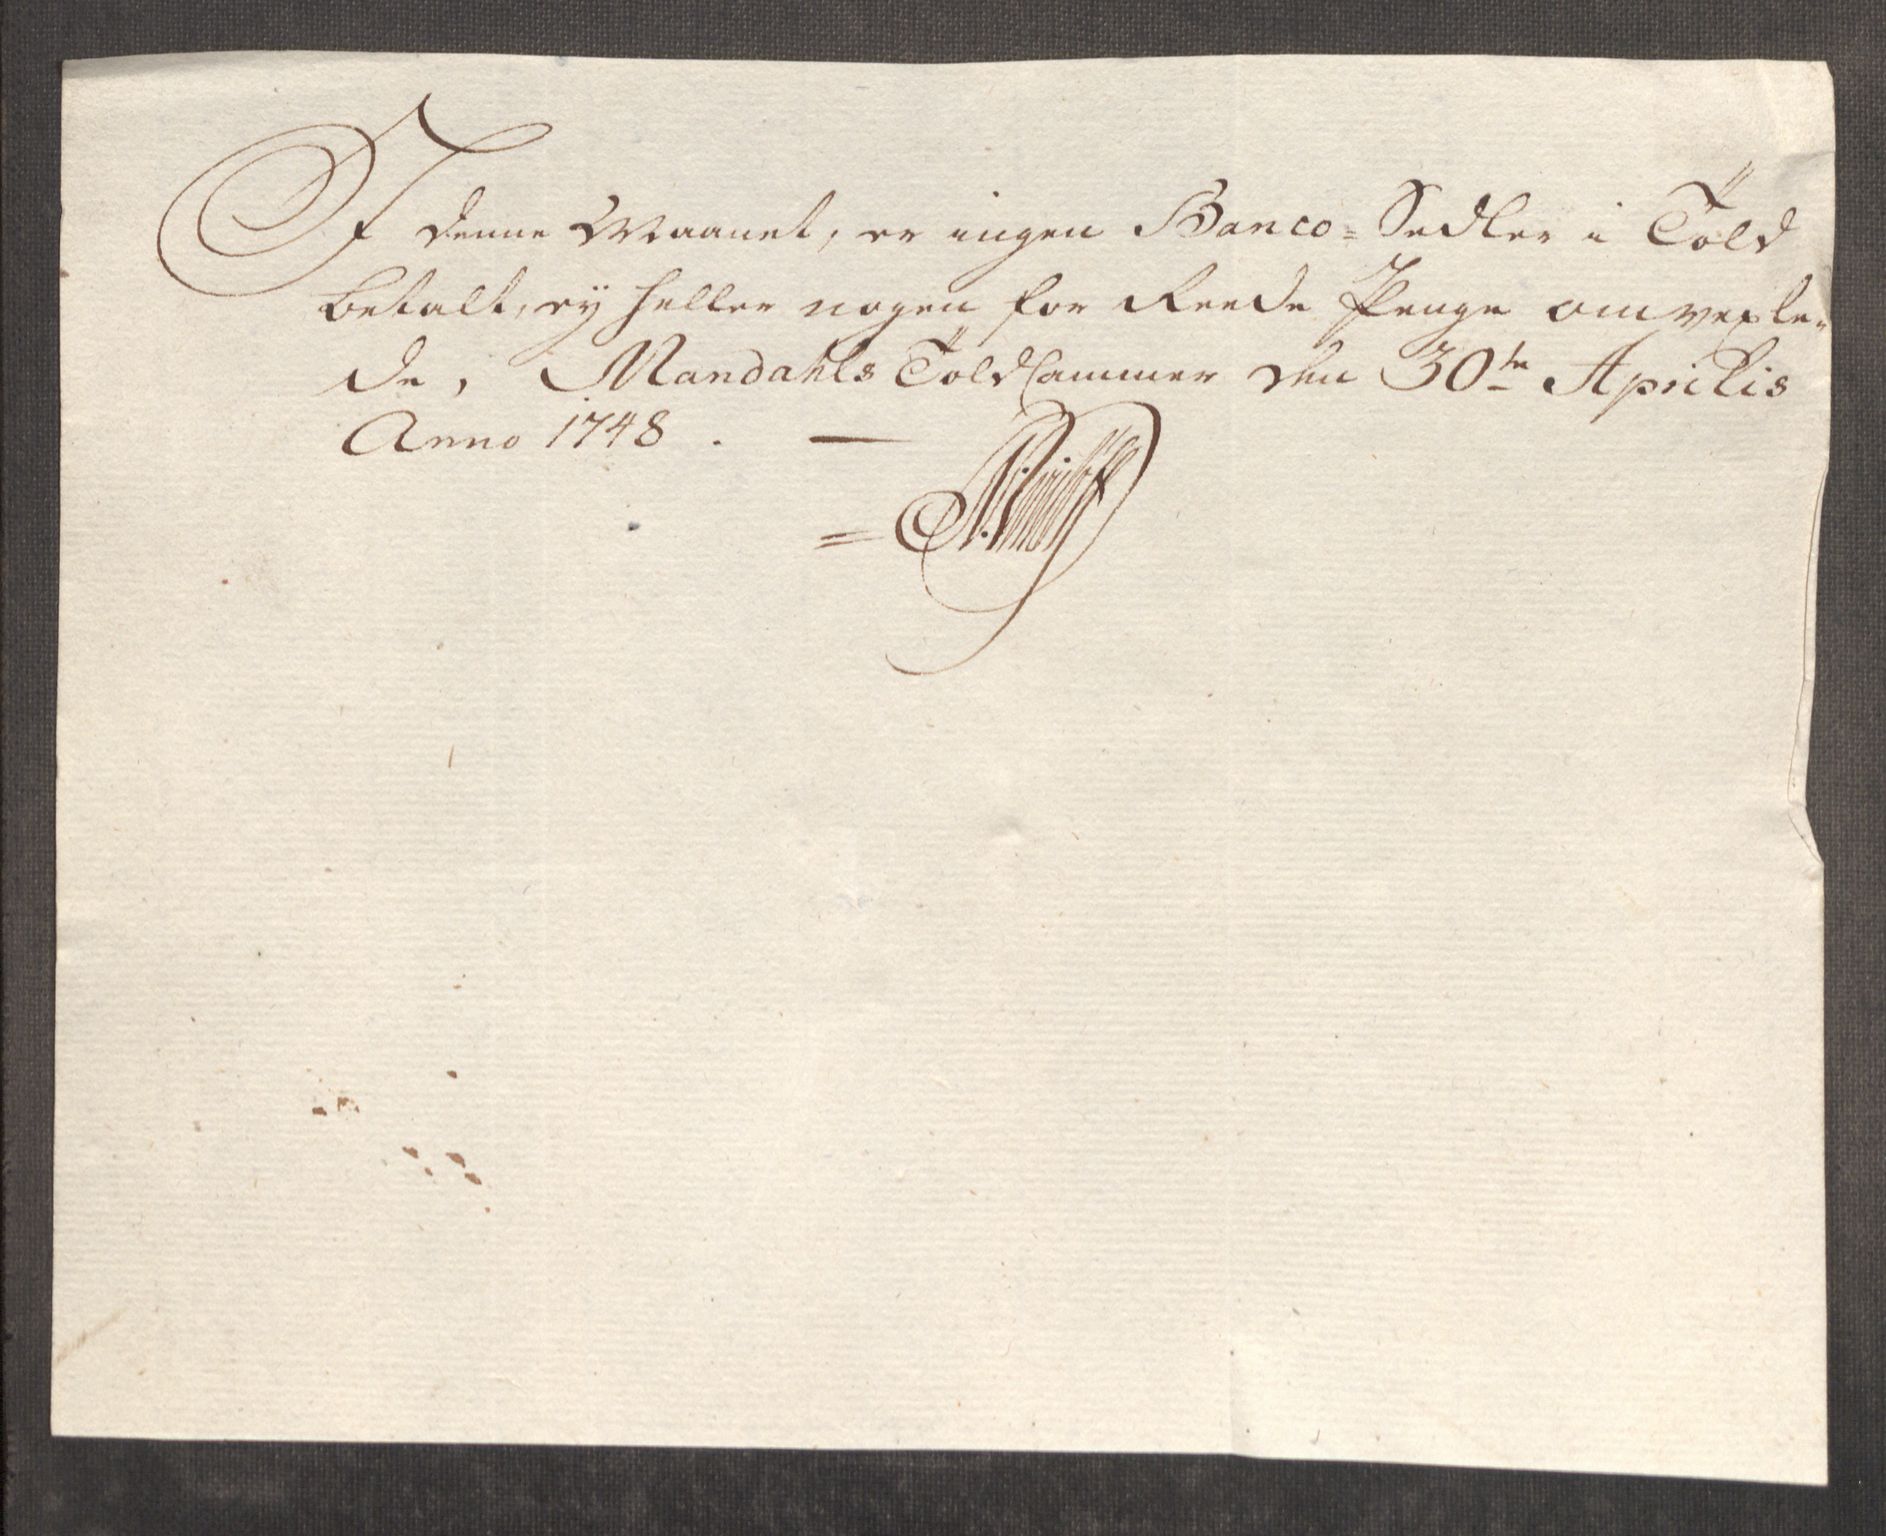 I denne Maanet, er ingen Banco=Sedler i Töld
betalt, ey heller nogen for Reede Penge omvexle„
de, Mandahls Töldcammer den 30te Aprilis
Anno 1748.